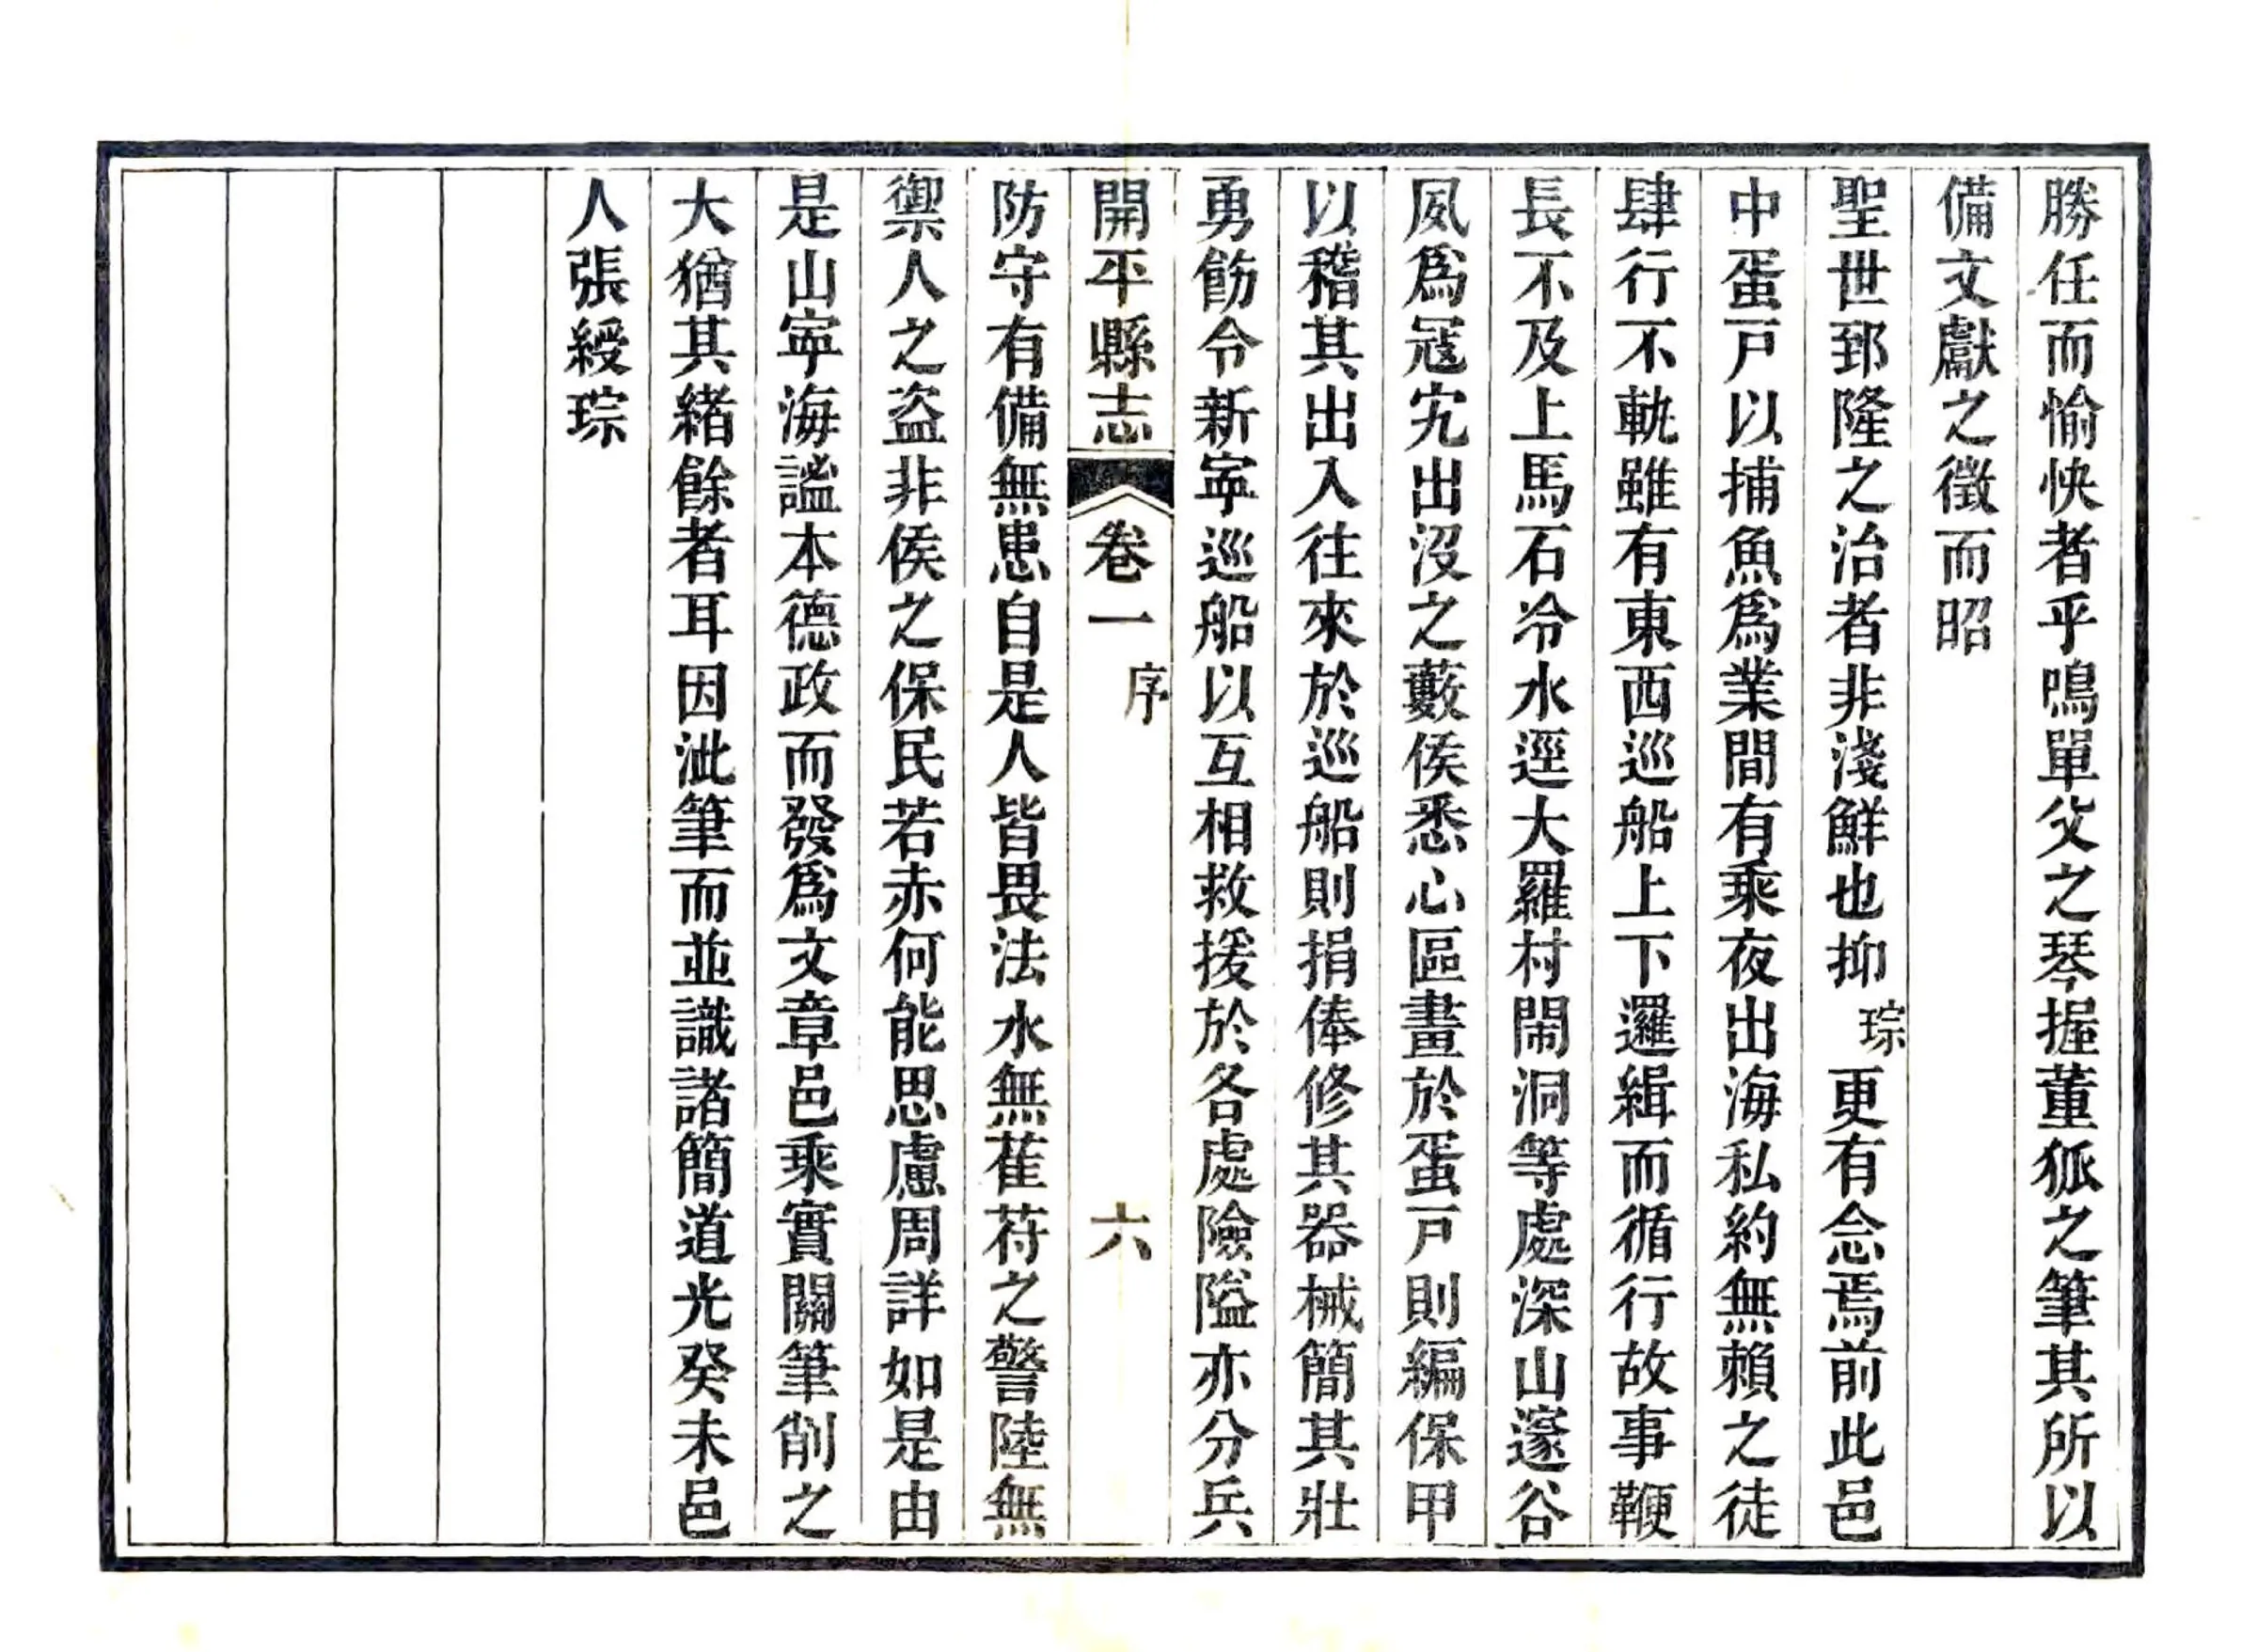 勝任而愉快者乎鳴單父之琴握董狐之筆其所以
備文獻之徵而昭
聖世郅隆之治者非淺鮮也抑琮更有念焉前此邑
中蛋戸以捕魚爲業間有乘夜出海私約無賴之徒
肆行不軌雖有東西巡船上下邏緝而循行故事鞭
長不及上馬石冷水逕大羅村閙洞等處深山邃谷
夙爲寇宄出没之藪侯悉心區畫於蛋戸則編保甲
以稽其出入往來於巡船則捐俸修其器械簡其壯
勇飭令新寧巡船以互相救援於各處險隘亦分兵
開平縣志 卷一 序 六
防守有備無患自是人皆畏法水無萑苻之警陸無
禦人之盗非侯之保民若赤何能思慮周詳如是由
是山寧海謐本德政而發爲文章邑乘實關筆削之
大猶其緒餘者耳因泚筆而並識諸簡道光癸未邑
人張綬琮